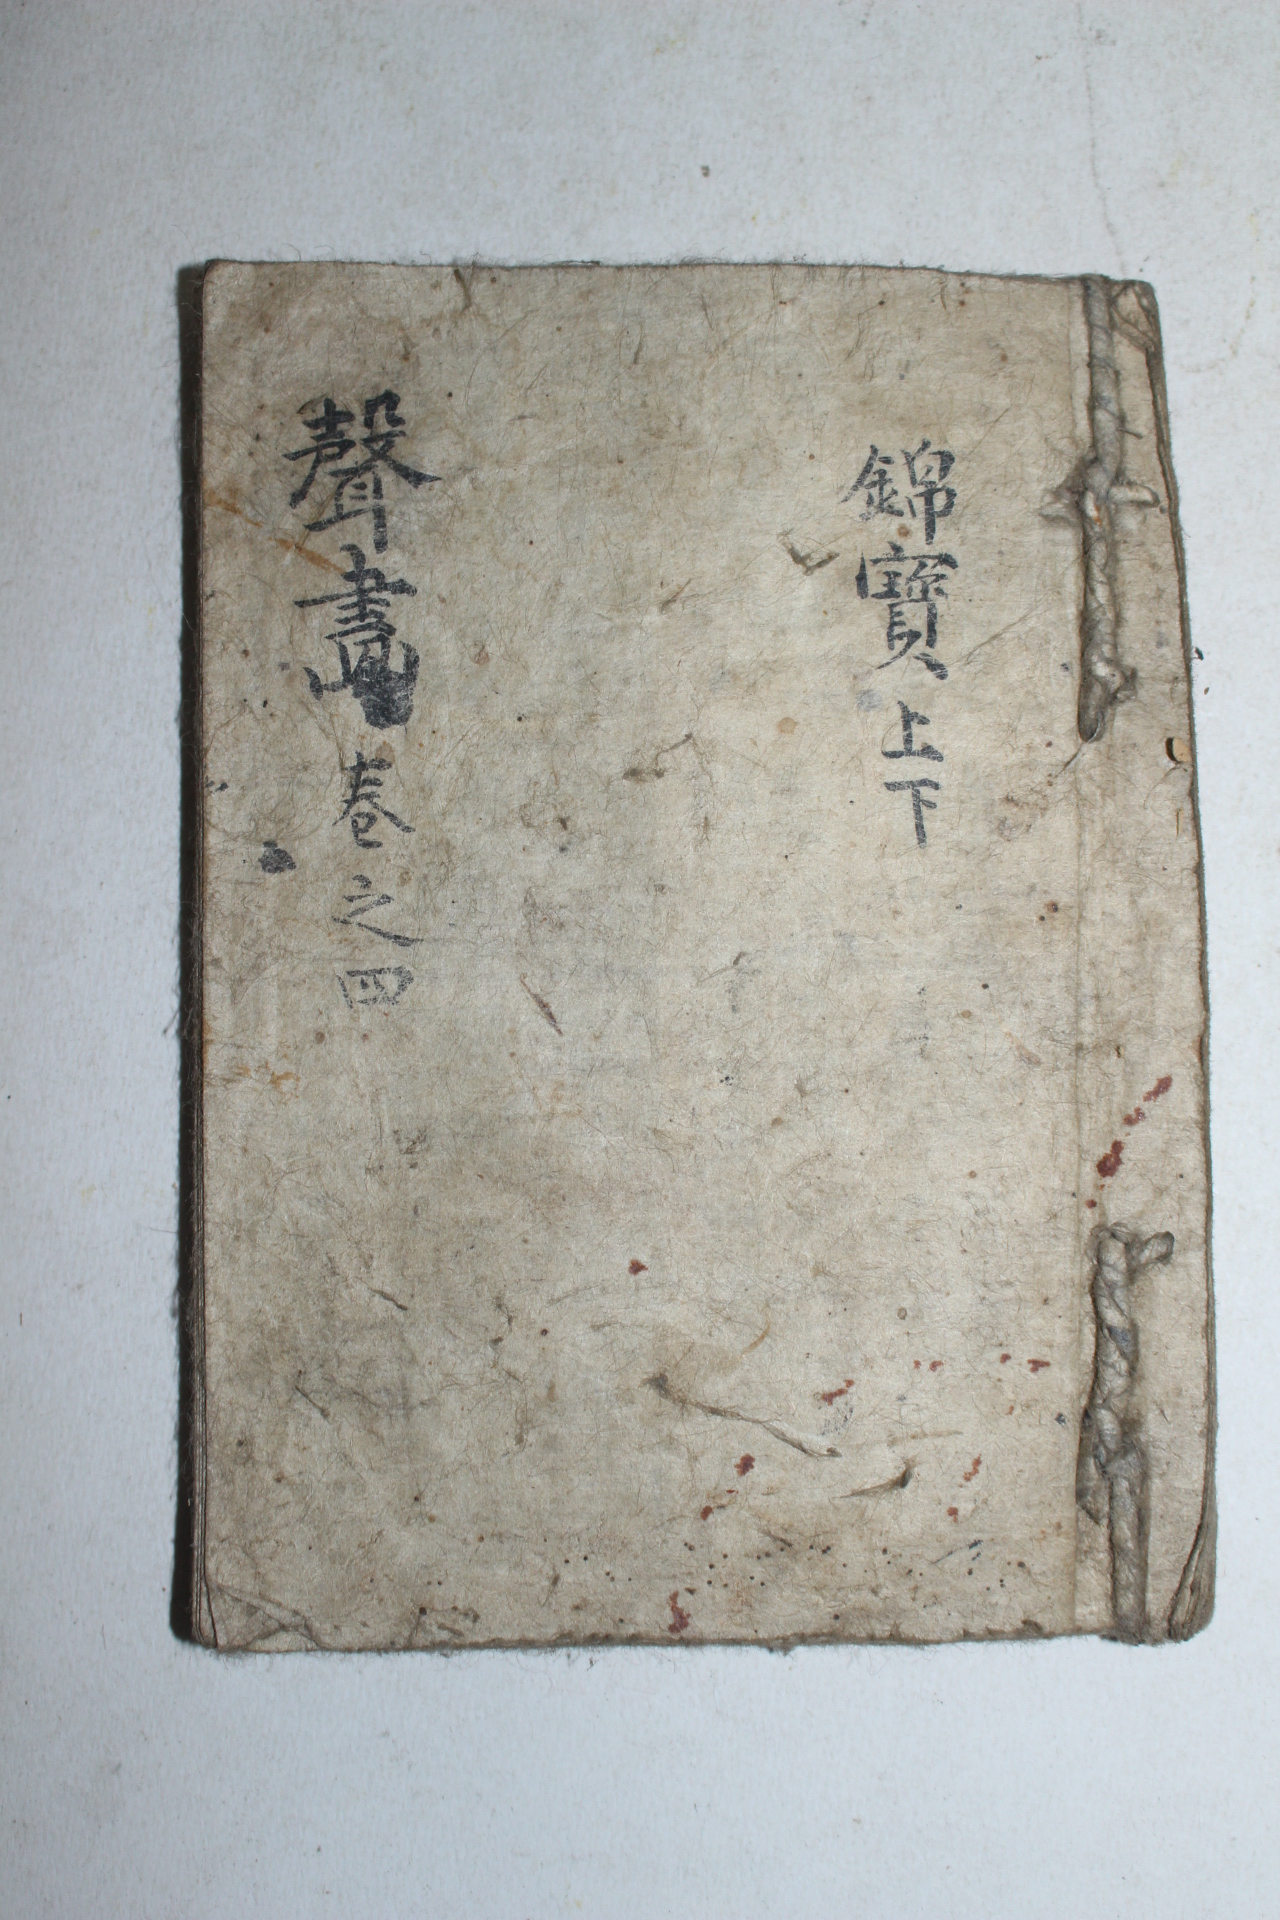 錦寶上下
聲畵卷之四